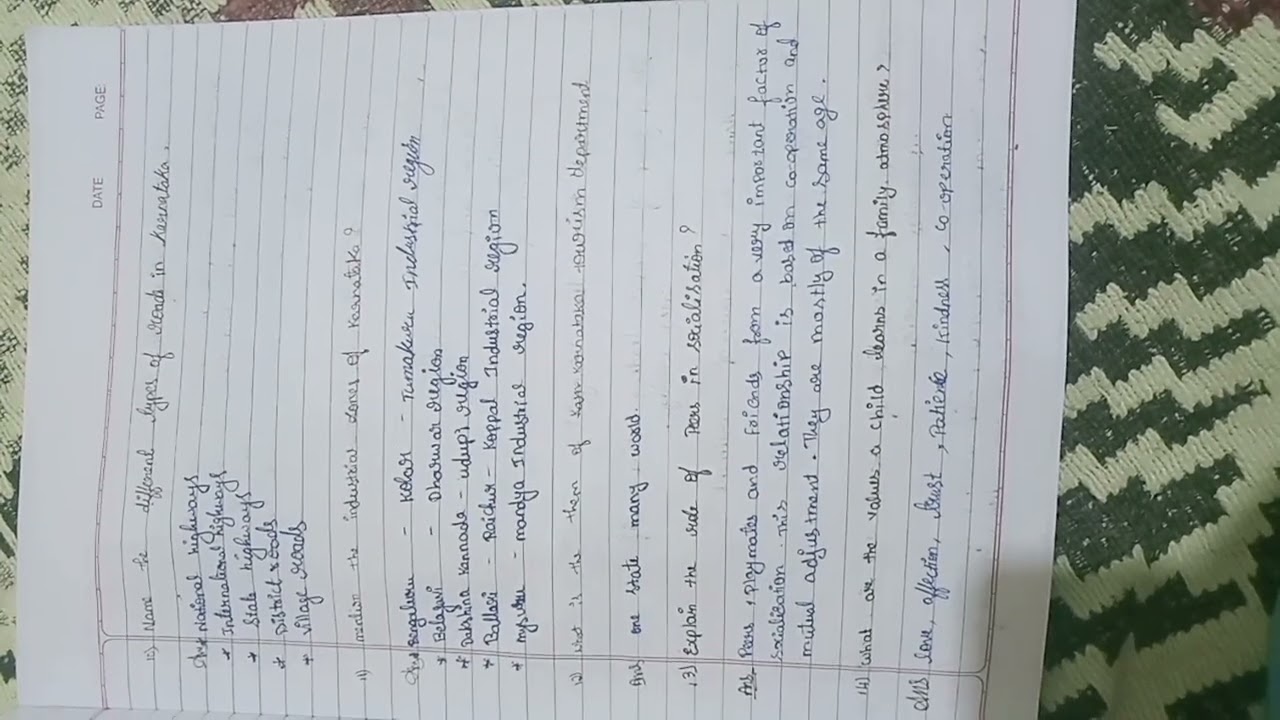 DATE PAGE
10) Name the different types of roads in Karnataka.
Ans * National highways
* International highways
* State highways
* District roads
* Village roads
11) mention the industrial zones of Karnataka?
Ans * Bengaluru - Kolar - Tumakuru Industrial region
* Belagavi - Dharwar region
* Dakshina Kannada - udupi region
* Ballari - Raichur - Koppal Industrial region
* mysuru - mandya Industrial region.
12) What is the them of Karnataka tourism department
Ans one State many world.
13) Explain the role of Peers in socialisation?
Ans Peers, Playmates and Friends from a very important factor of
socialication. This relationship is based on co-operation and
mutual adjustment. They are mostly of the same age.
14) What are the values a child learns in a family atmosphere?
Ans love, affection, trust, Patience, Kindness, co-operation